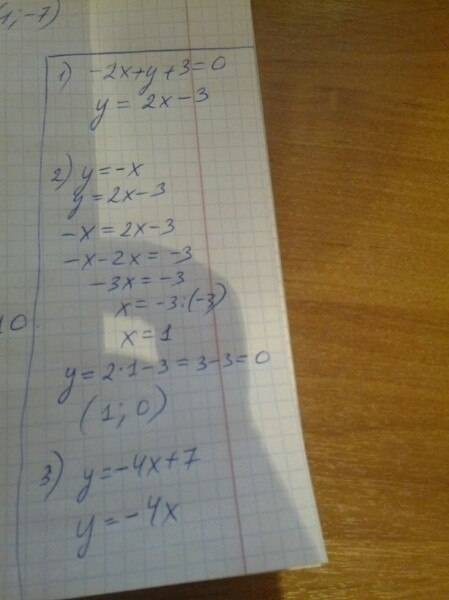 1; -7)
1) -2x+y+3=0
y = 2x-3
2) y=-x
y=2x-3
-x=2x-3
-x-2x=-3
-3x=-3
x=-3:(-3)
x=1
10
y=2·1-3=3-3=0
(1; 0)
3) y=-4x+7
y=-4x